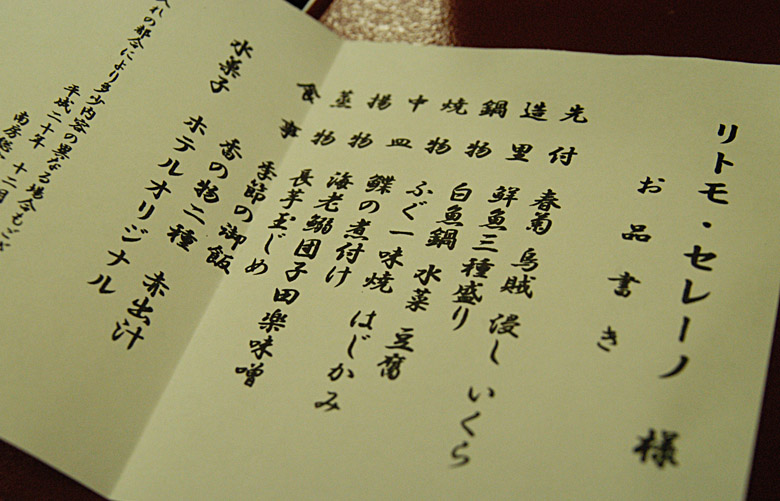 リトモ・セレーノ 様
お品書き
先付 春菊 烏賊 浸し いくら
造里 鮮魚三種盛り
鍋物 白魚鍋 水菜 豆腐
焼物 ふぐ一味焼 はじかみ
中皿 鰈の煮付け
揚物 海老鰯団子田楽味噌
蒸物 長芋玉じめ
食事 季節の御飯
香の物二種 赤出汁
水菓子 ホテルオリジナル
入れの都合により多少内容の異なる場合もござ
平成二十年 十二月
南房総